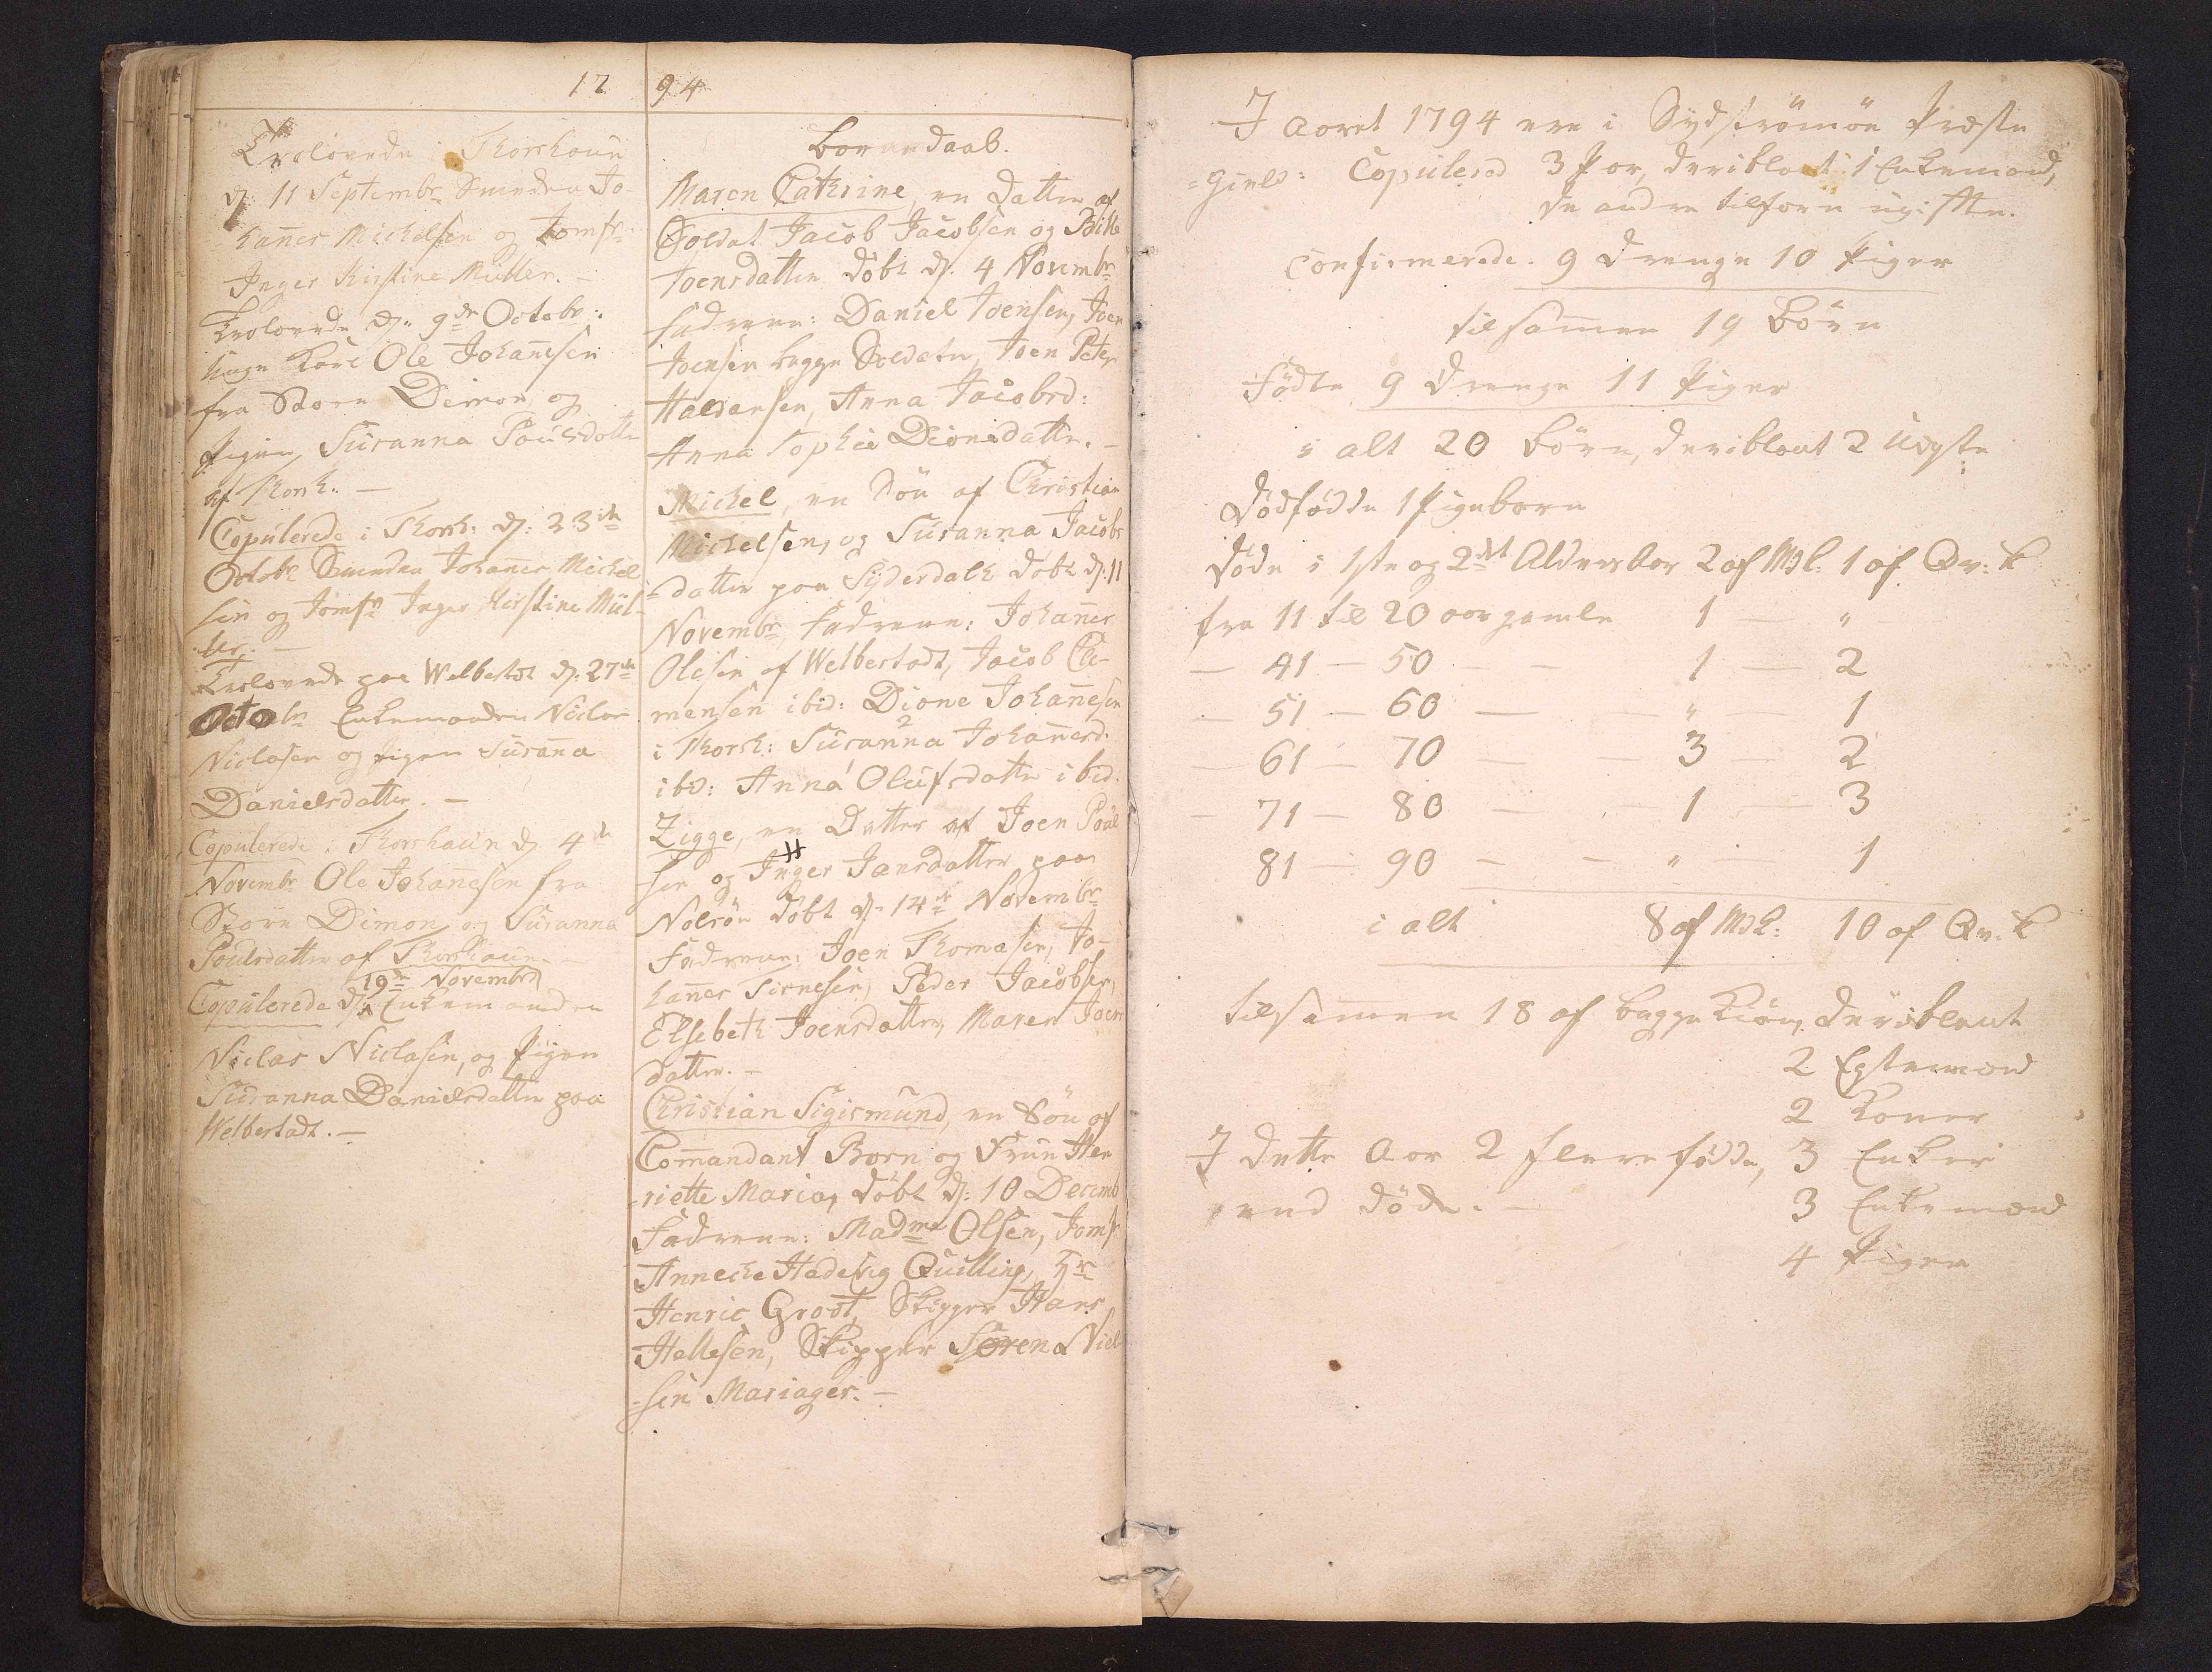 17 94
Trolovede i Thorshavn
d: 11 Septembr Svenden Jo-
hañes Michelsen og Jomfr:
Inger Kirstine Müller. —
Trolovede d: 9de Octobr:
unge Karl Ole Johañesen
fra Store Dimon og
Pigen Susanna Poulsdatter
af Thorsh: —
Copulerede i Thorsh: d: 23de
Octobr Svenden Johañes Michel
sen og Jomfr Inger Kirstine Mül-
ler. —
Trolovede paa Welbestad d: 27de
Octobr Enkemanden Niclas
Niclasen og Pigen Susaña
Danielsdatter. —
Copulerede i Thorshavn d: 4de
Novembr Ole Johañesen fra
Store Dimon og Susanna
Poulsdatter af Thorshavn. —
19de Novembr
Copulerede d: Enkemanden
Niclas Niclasen, og Pigen
Susanna Danielsdatter paa
Welbestadt. —
Børnedaab.
Maren Cathrine, en Datter af
Soldat Jacob Jacobsen og Bille
Joensdatter døbt d: 4 Novembr
Fadrene: Daniel Joensen, Joen
Joensen begge Soldater, Joen Peter
Haldansen, Anna Jacobsd:
Anna Sophie Dionsdatter. —
Michel, en Søn af Christian
Michelsen, og Susanna Jacobs
-datter paa Syderdalh døbt d: 11
Novembr Fadrene: Johañes
Olesen af Welbestadt, Jacob Cle-
mensen ibid: Dione Johañesen
i Thorsh: Susanna 2 Johañesd.
ibd: Anna Olufsdatter ibid.
Zigge, en Datter af Joen Poul
sen og Inger Jansdatter paa
Nolsøe døbt d: 14de Novembr
Fadrene: Joen Thomasen, Jo-
hañes Simesen, Peder Jacobsen,
Elsebeth Joensdatter, Maren Joens
datter. —
Christian Sigismund, en Søn af
Comandant Born og Frue Hen
-riette Maria, døbt d: 10 Decemb
Fadrene: Madme Olsen, Jomfr
Anneche Hedevig Quilling, Hr
Henric Groot, Skipper Hans
Hellesen, Skipper Søren Niel
-sen Mariager. —
I Aaret 1794 ere i Sydströmöe Præste
=gield: Copulered 3 Par, deriblant 1 Enkemand,
de andre tilforn ugifte.
Confirmerede: 9 Drenge 10 Piger
tilsamen 19 Börn
Födte 9 Drenge 11 Piger
i alt 20 Börn, deriblant 2 Uægte
Dödfödde 1 Pigebarn
Döde i 1ste og 2det Alders Aar 2 af Mdk: 1 af Qv: k
fra 11 til 20 aar gamle 1 — "
— 41 — 50 — — 1 — 2
— 51 — 60 — — " — 1
— 61 — 70 — — 3 — 2
— 71 — 80 — — 1 — 3
81 — 90 — — " — 1
i alt 8 af Mdk: 10 af Qv. k
tilsamen 18 af begge Kiøn, deriblant
2 Egtemænd
2 Koner
I dette Aar 2 flere fødde, 3 Enker
end døde. — 3 Enkemænd
4 Piger